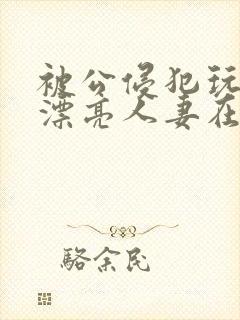 被公侵犯玩
漂亮人妻在
駱余民